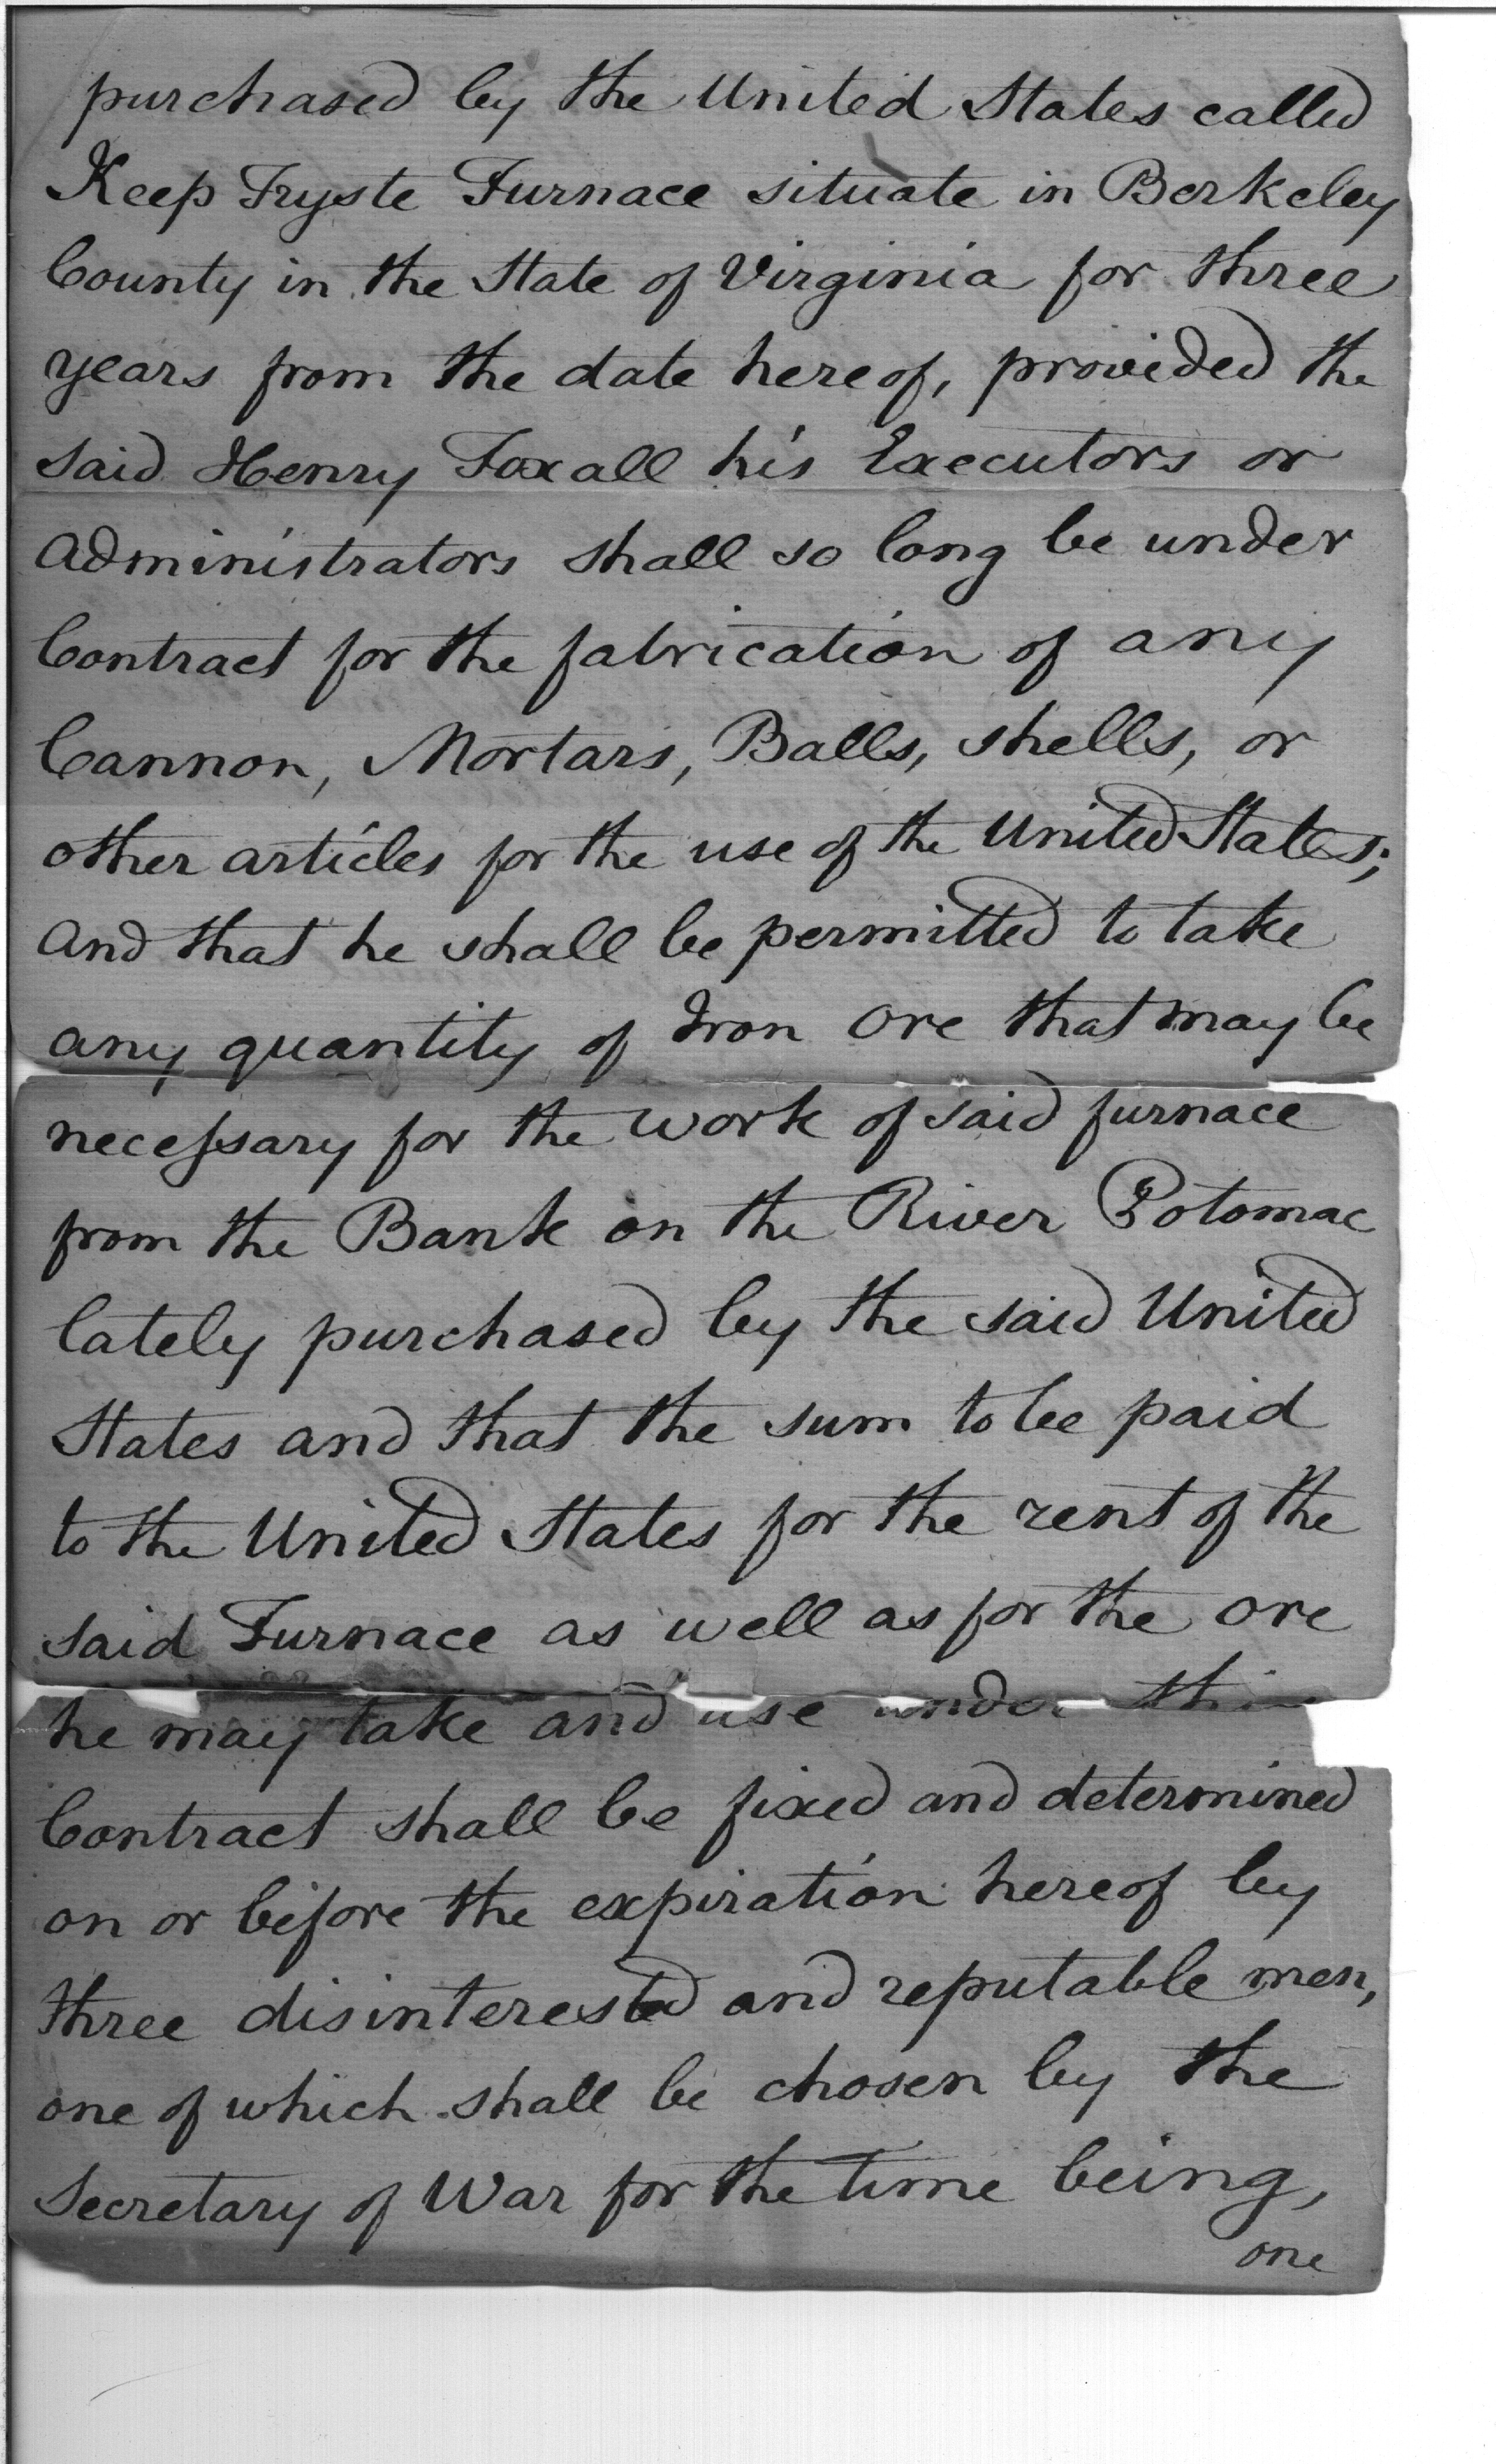 purchased by the United States called
Keep Tryste Furnace situate in Berkeley
County in the State of Virginia for three
years from the date hereof, provided the
said Henry Foxall his Executors or
Administrators shall so long be under
Contract for the fabrication of any
Cannon, Mortars, Balls, shells, or
other articles for the use of the United States;
and that he shall be permitted to take
any quantity of Iron Ore that may be
necessary for the work of said furnace
from the Bank on the River Potomac
lately purchased by the said United
States and that the sum to be paid
to the United States for the rent of the
said Furnace as well as for the ore
he may take and use under this
Contract shall be fixed and determined
on or before the expiration hereof by
three disinterested and reputable men,
one of which shall be chosen by the
Secretary of War for the time being,
one